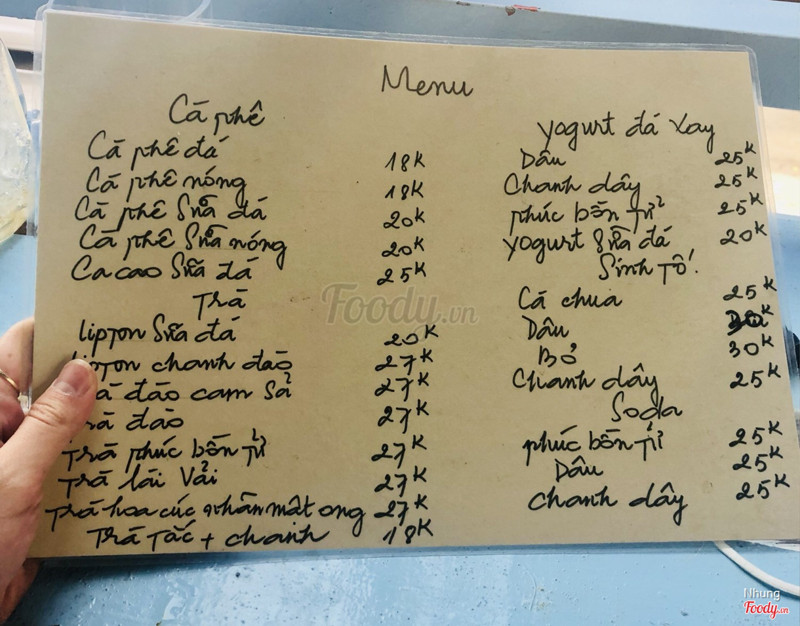 Menu
Cà phê
Cà phê đá 18K
Cà phê nóng 18K
Cà phê Sữa đá 20K
Cà phê Sữa nóng 20K
Ca cao Sữa đá 25K
Trà
lipton Sữa đá 20K
lipton chanh đào 27K
đào cam Sả 27K
đào 27K
Trà phúc bồn Tử 27K
Trà lài Vải 27K
Trà hoa cúc nhãn mật ong 27K
Trà Tắc + chanh 18K
yogurt đá xay
Dâu 25K
Chanh dây 25K
phúc bồn Tử 25K
yogurt Sữa đá 20K
Sinh Tố
Cà chua 25K
Dâu
Bơ 30K
Chanh dây 25K
Soda
phúc bồn Tử 25K
Dâu 25K
chanh dây 25K
Foody.vn
Nhung
Foody.vn